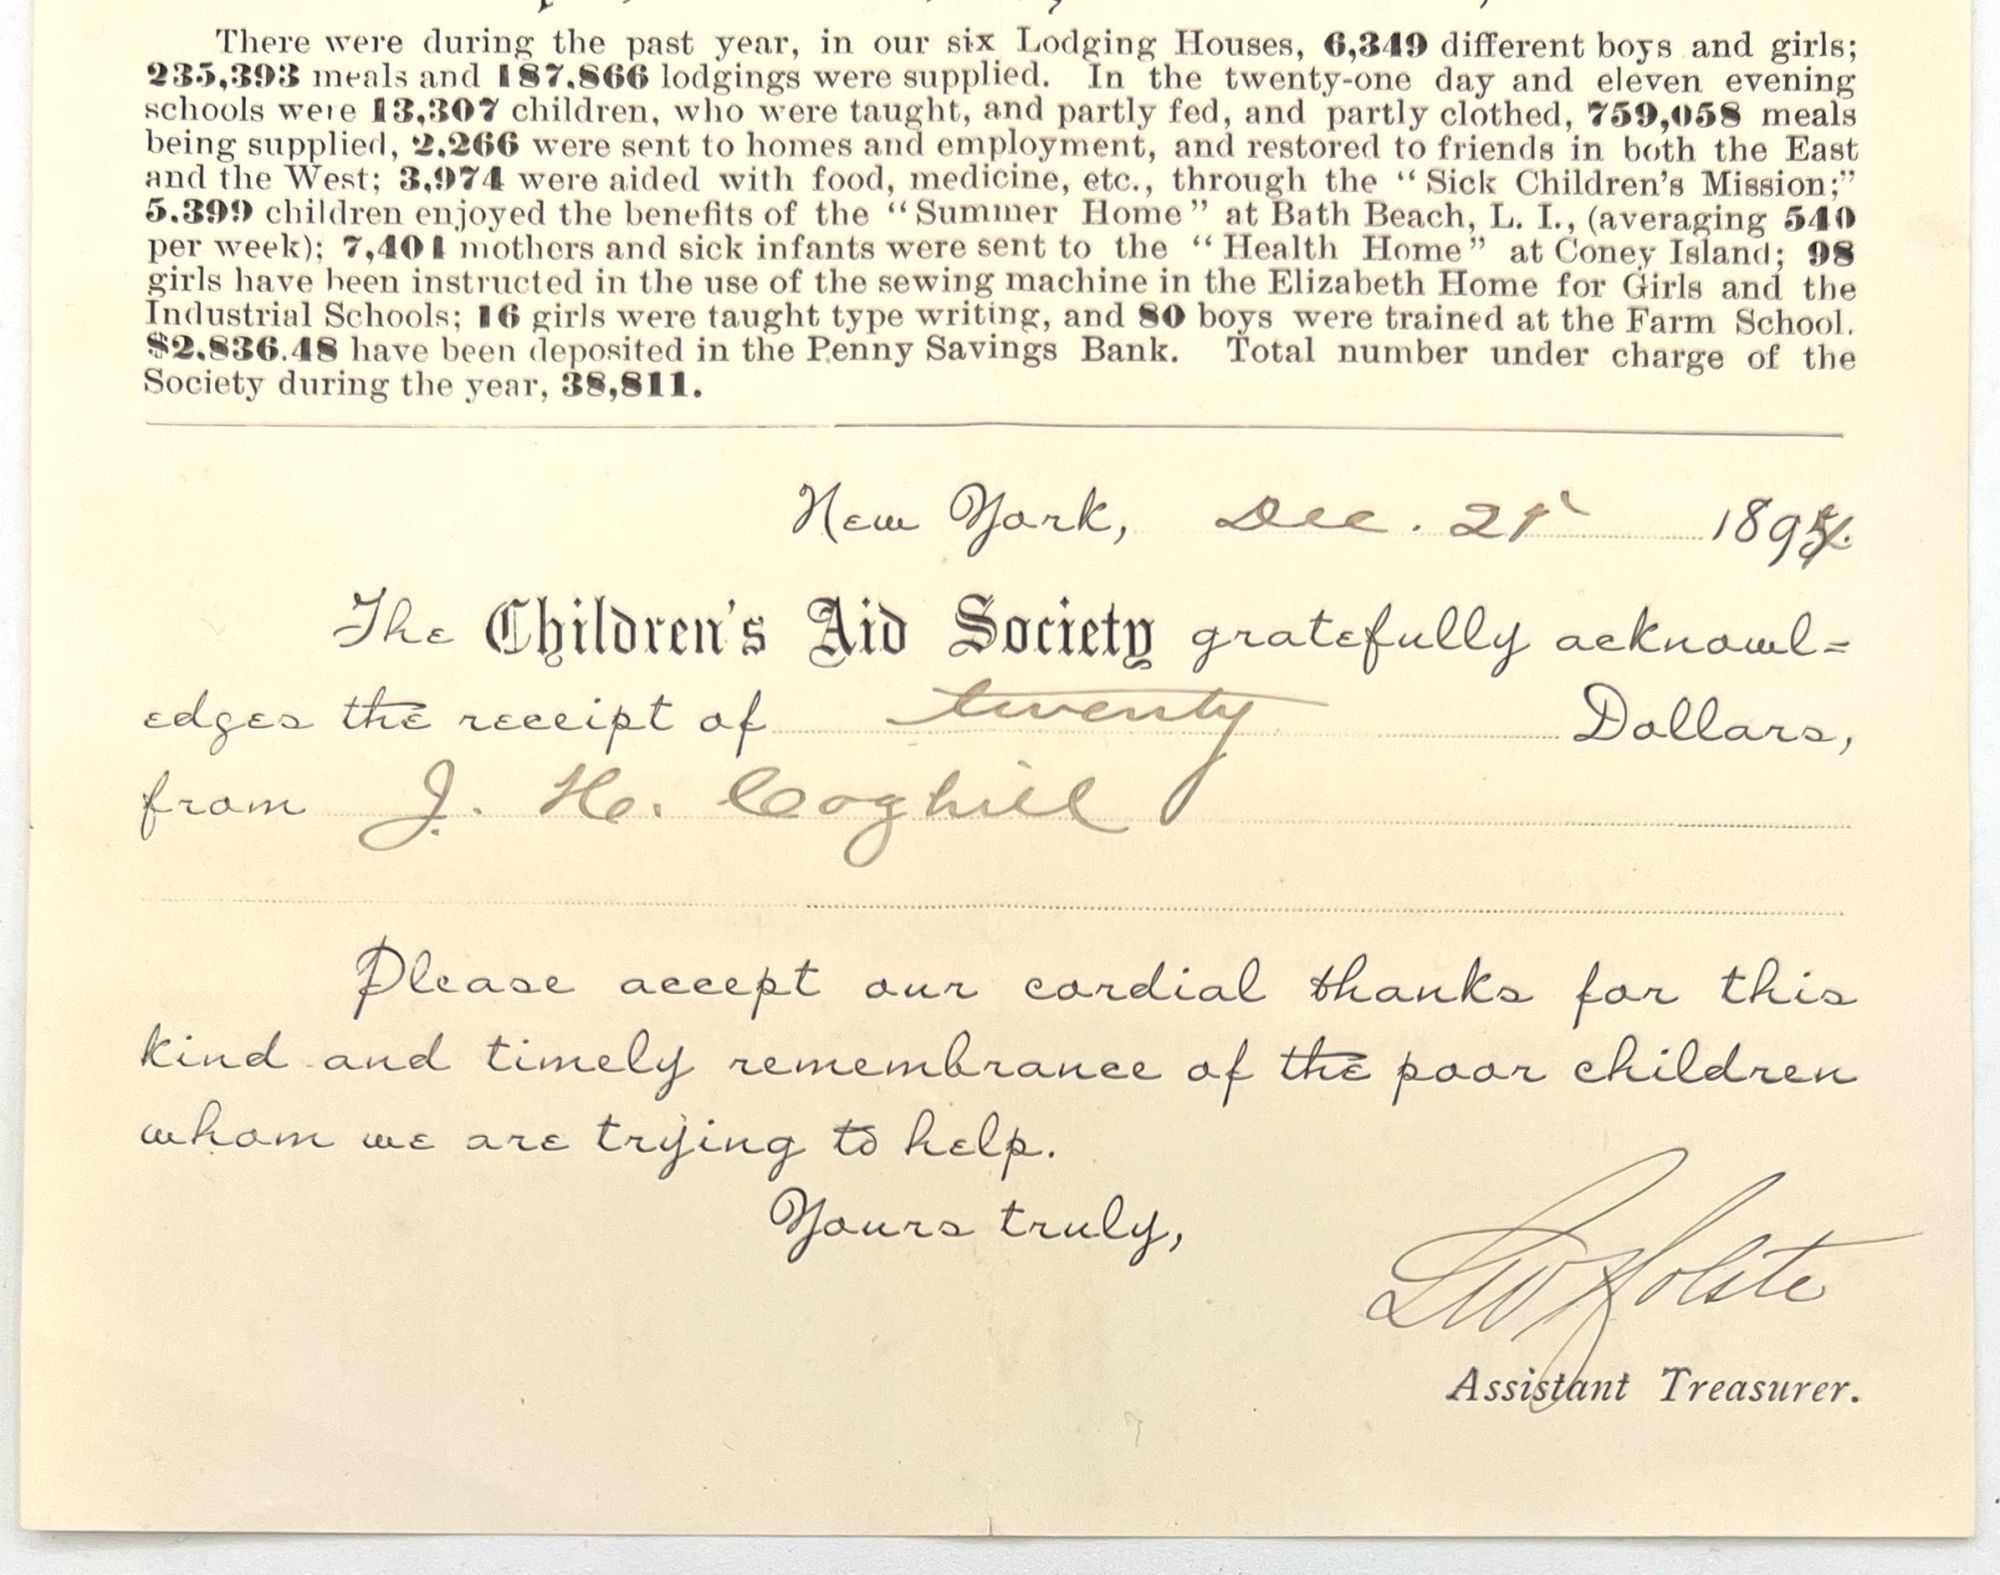 There were during the past year, in our six Lodging Houses, 6,349 different boys and girls;
235,393 meals and 187,866 lodgings were supplied. In the twenty-one day and eleven evening
schools were 13,307 children, who were taught, and partly fed, and partly clothed, 759,058 meals
being supplied, 2,266 were sent to homes and employment, and restored to friends in both the East
and the West; 3,974 were aided with food, medicine, etc., through the “Sick Children’s Mission;”
5.399 children enjoyed the benefits of the “Summer Home” at Bath Beach, L. I., (averaging 540
per week); 7,401 mothers and sick infants were sent to the “Health Home” at Coney Island; 98
girls have been instructed in the use of the sewing machine in the Elizabeth Home for Girls and the
Industrial Schools; 16 girls were taught type writing, and 80 boys were trained at the Farm School.
$2,836.48 have been deposited in the Penny Savings Bank. Total number under charge of the
Society during the year, 38,811.
New York, Dec. 21 189
The Children's Aid Society gratefully acknowl=
edges the receipt of twenty Dollars,
from J. H. Coghill
Please accept our cordial thanks for this
kind and timely remembrance of the poor children
whom we are trying to help.
Yours truly,
Holste
Assistant Treasurer.